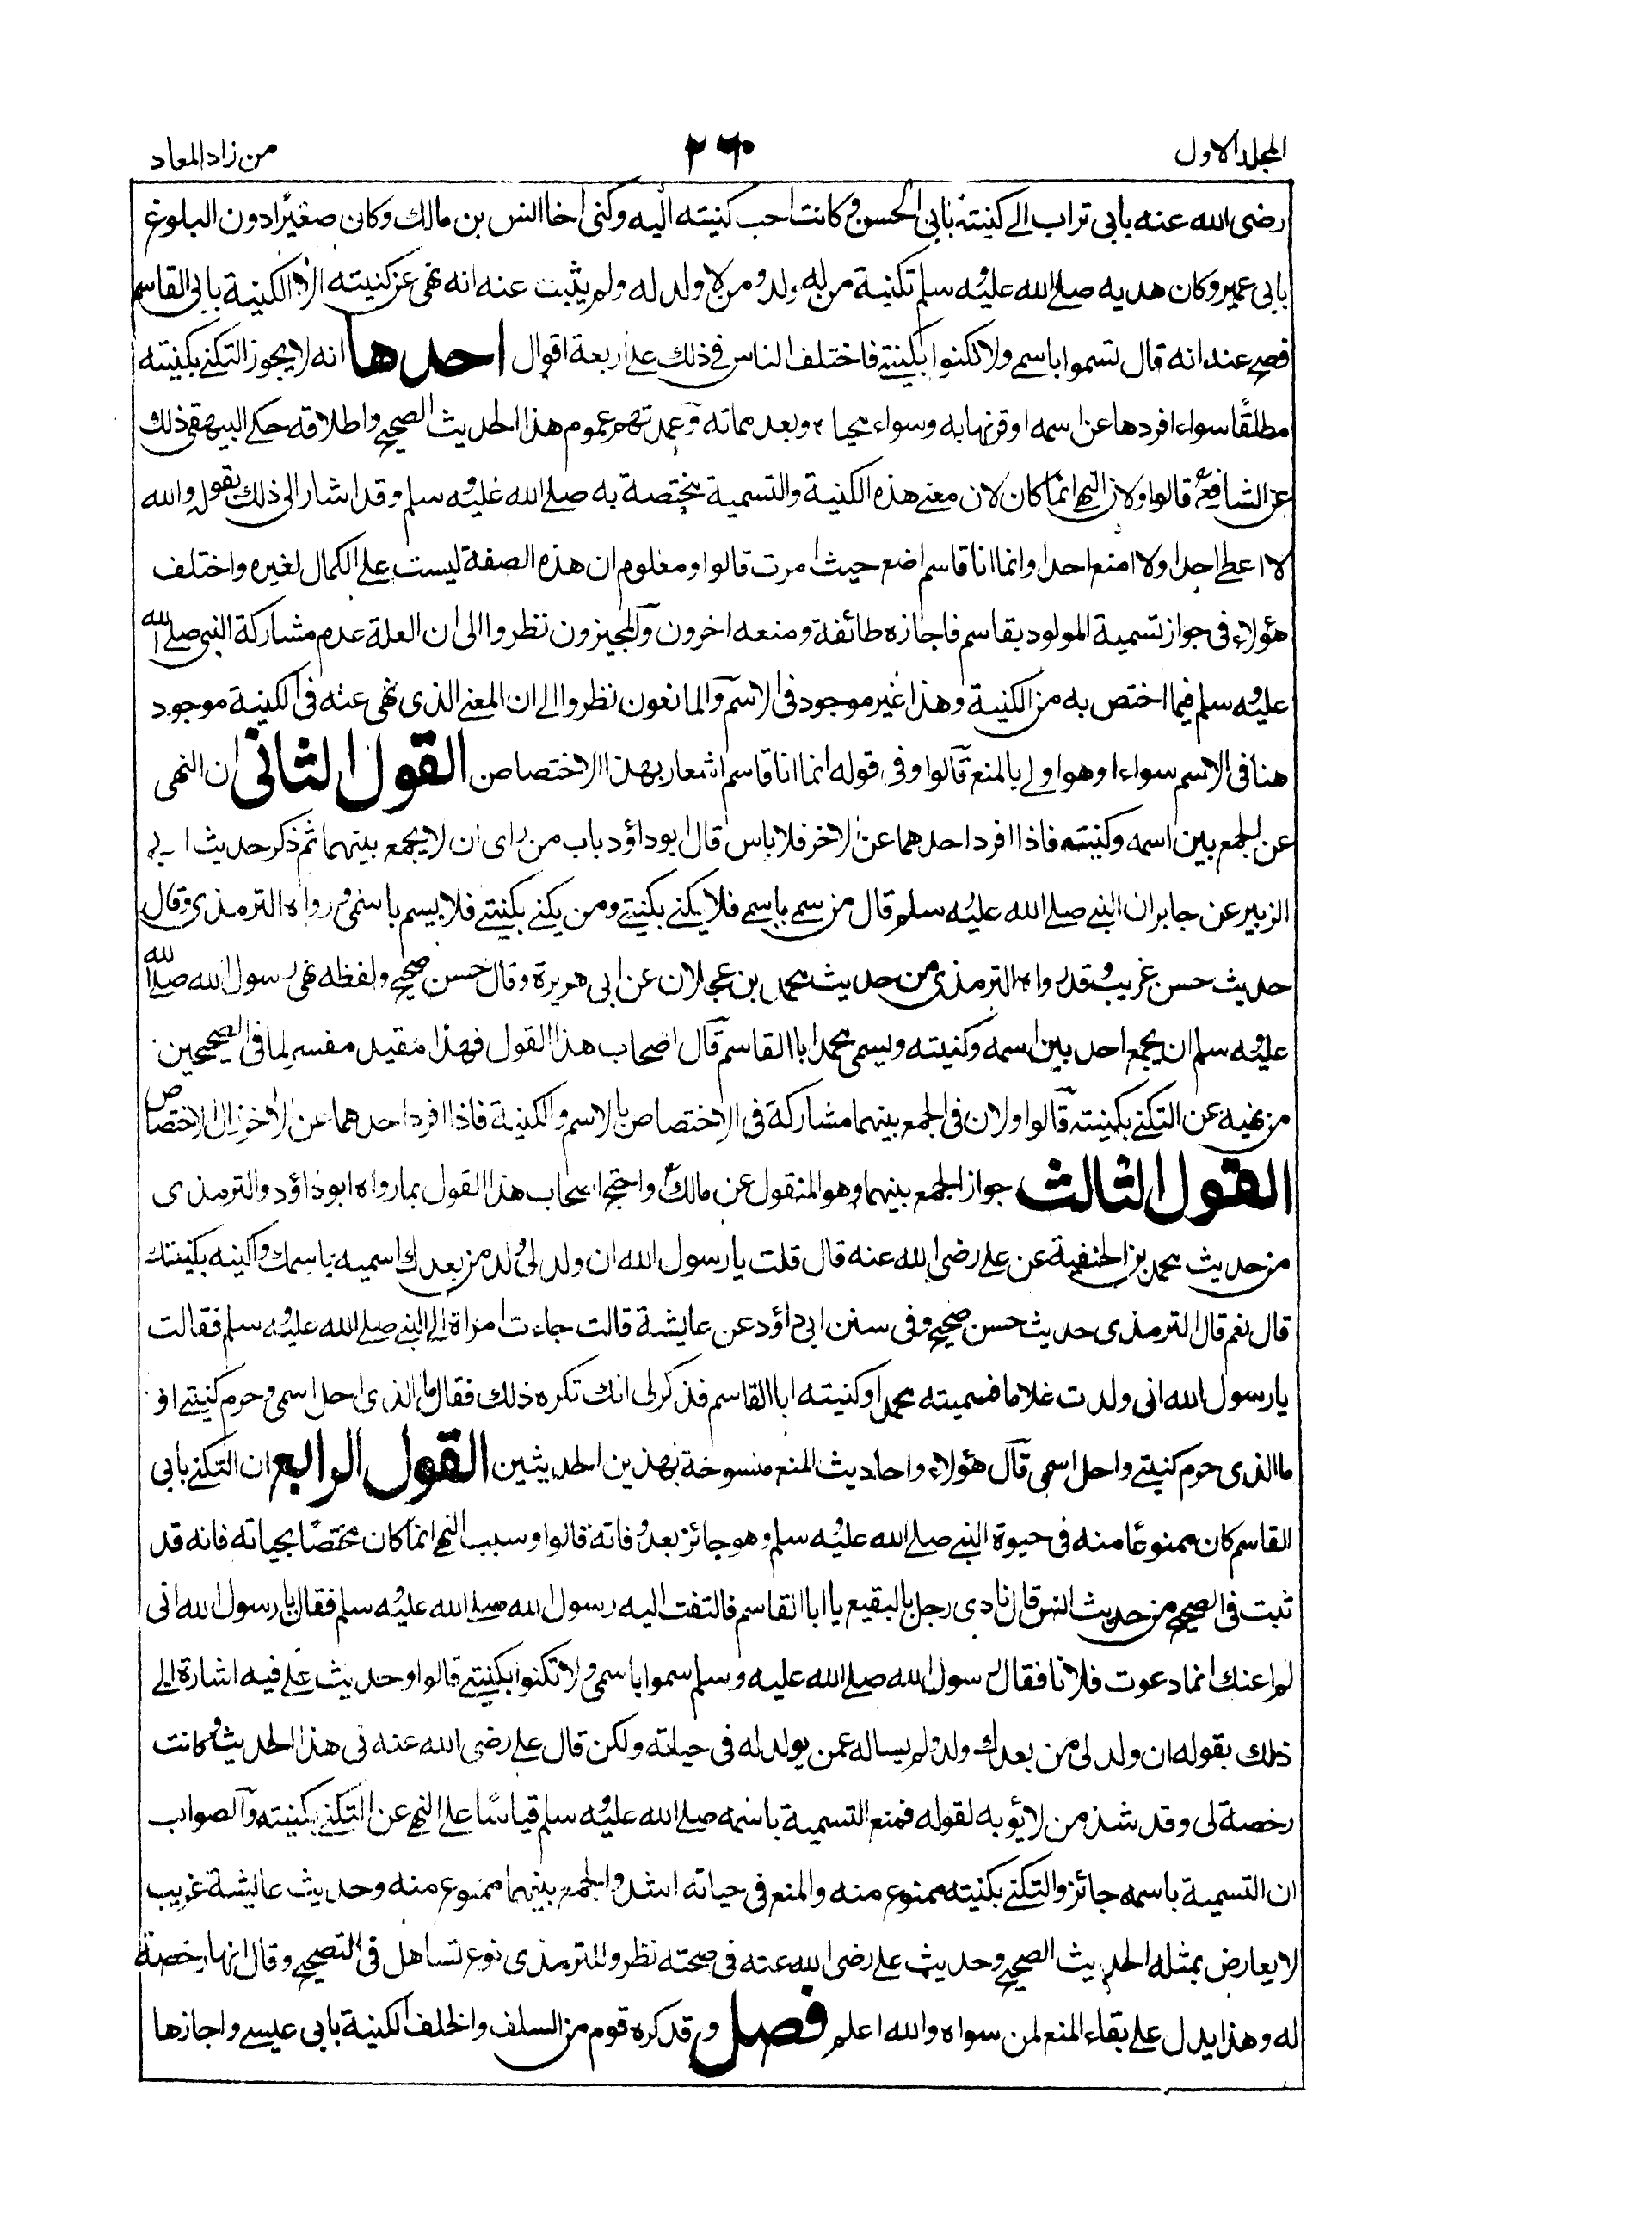 المجلد الاول
٢٦٠
من زاد المعاد
رضى الله عنه بابى تراب الى كنيته بابى الحسن وكانت احب كنيته اليه وكنى اخا انس بن مالك وكان صغيرًا دون البلوغ
بابى عمير وكان هديه صلى الله عليه وسلم تكنية من له ولد ومن لا ولد له ولم يثبت عنه انه نهى عن كنيته الا الكنية بابى القاسم
فصح عنه انه قال تسموا باسمى ولا تكنوا بكنيتى فاختلف الناس فى ذلك على اربعة اقوال احدها انه لا يجوز التكنى بكنيته
مطلقًا سواء افردها عن اسمه او قرنها به وسواء محياه وبعد مماته وعمدتهم عموم هذا الحديث الصحيح واطلاقه حكى البيهقى ذلك
عن الشافعى قالوا ولان النهى انما كان لان معنى هذه الكنية والتسمية مختصة به صلى الله عليه وسلم وقد اشار الى ذلك بقوله والله
لا اعطى احدا ولا امنع احدا وانما انا قاسم اضع حيث امرت قالوا ومعلوم ان هذه الصفة ليست على الكمال لغيره واختلف
هؤلاء فى جواز تسمية المولود بقاسم فاجازه طائفة ومنعه اخرون والمجيزون نظروا الى ان العلة عدم مشاركة النبى صلى الله
عليه وسلم فيما اختص به من الكنية وهذا غير موجود فى الاسم والمانعون نظروا الى ان المعنى الذى نهى عنه فى الكنية موجود
هنا فى الاسم سواء او هو اولى بالمنع قالوا وفى قوله انما انا قاسم اشعار بهذا الاختصاص القول الثانى ان النهى
عن الجمع بين اسمه وكنيته فاذا افرد احدهما عن الاخر فلا باس قال ابو داؤد باب من راى ان لا يجمع بينهما ثم ذكر حديث ابى
الزبير عن جابر ان النبى صلى الله عليه وسلم قال من سمى باسمى فلا يكنى بكنيتى ومن يكنى بكنيتى فلا يسم باسمى ورواه الترمذى وقال
حديث حسن غريب وقد رواه الترمذى من حديث محمد بن عجلان عن ابى هريرة وقال حسن صحيح ولفظه نهى رسول الله صلى الله
عليه وسلم ان يجمع احد بين اسمه وكنيته ويسمى محمدا ابا القاسم قال اصحاب هذا القول فهذا مقيد مفسر لما فى الصحيحين
من نهيه عن التكنى بكنيته قالوا ولان فى الجمع بينهما مشاركة فى الاختصاص بالاسم والكنية فاذا افرد احدهما عن الاخر زال الاختصاص
القول الثالث جواز الجمع بينهما وهو المنقول عن مالك واحتج اصحاب هذا القول بما رواه ابو داؤد والترمذى
من حديث محمد بن الحنفية عن على رضى الله عنه قال قلت يا رسول الله ان ولد لى ولد من بعدك اسميه باسمك واكنيه بكنيتك
قال نعم قال الترمذى حديث حسن صحيح وفى سنن ابى داؤد عن عايشة قالت جاءت امراة الى النبى صلى الله عليه وسلم فقالت
يا رسول الله انى ولدت غلاما فسميته محمدا وكنيته ابا القاسم فذكر لى انك تكره ذلك فقال ما الذى احل اسمى وحرم كنيتى او
ما الذى حرم كنيتى واحل اسمى قال هؤلاء واحاديث المنع منسوخة بهذين الحديثين القول الرابع ان التكنى بابى
القاسم كان ممنوعًا منه فى حيوة النبى صلى الله عليه وسلم وهو جائز بعد وفاته قالوا وسبب النهى انما كان مختصًا بحياته فانه قد
ثبت فى الصحيح من حديث انس قال نادى رجل بالبقيع يا ابا القاسم فالتفت اليه رسول الله صلى الله عليه وسلم فقال يا رسول الله انى
لم اعنك انما دعوت فلانا فقال رسول الله صلى الله عليه وسلم سموا باسمى ولا تكنوا بكنيتى قالوا وحديث على فيه اشارة الى
ذلك بقوله ان ولد لى من بعدك ولد ولم يساله عمن يولد له فى حياته ولكن قال على رضى الله عنه فى هذا الحديث وكانت
رخصة لى وقد شذ من لا يؤبه لقوله فمنع التسمية باسمه صلى الله عليه وسلم قياسًا على النهى عن التكنى بكنيته والصواب
ان التسمية باسمه جائز والتكنى بكنيته ممنوع منه والمنع فى حياته اشد والجمع بينهما ممنوع منه وحديث عائشة غريب
لا يعارض بمثله الحديث الصحيح وحديث على رضى الله عنه فى صحته نظر وللترمذى نوع تساهل فى التصحيح وقال انها رخصة
له وهذا يدل على بقاء المنع لمن سواه والله اعلم فصل وقد كره قوم من السلف والخلف الكنية بابى عيسى واجازها